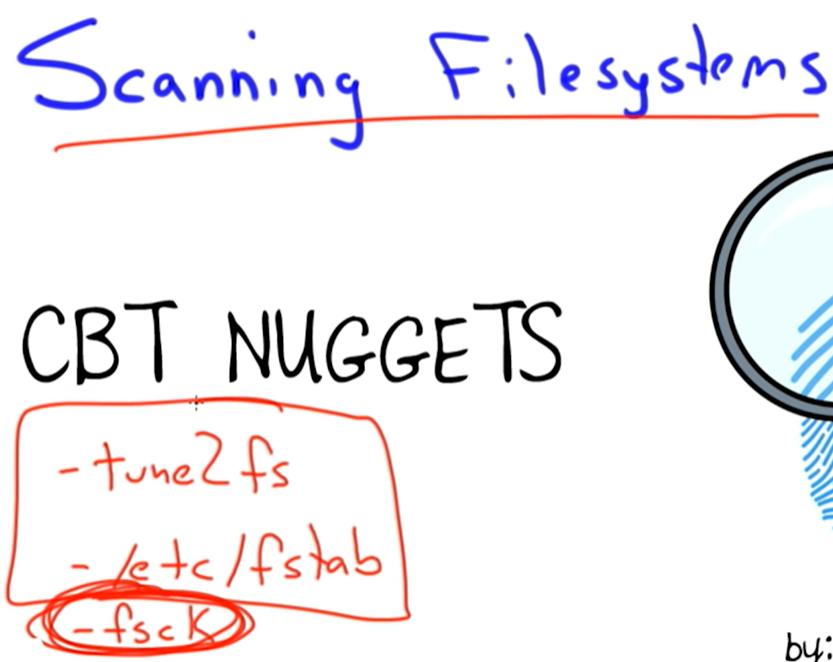 Scanning Filesystems
CBT NUGGETS
- tune2fs
- /etc/fstab
- fsck
by: